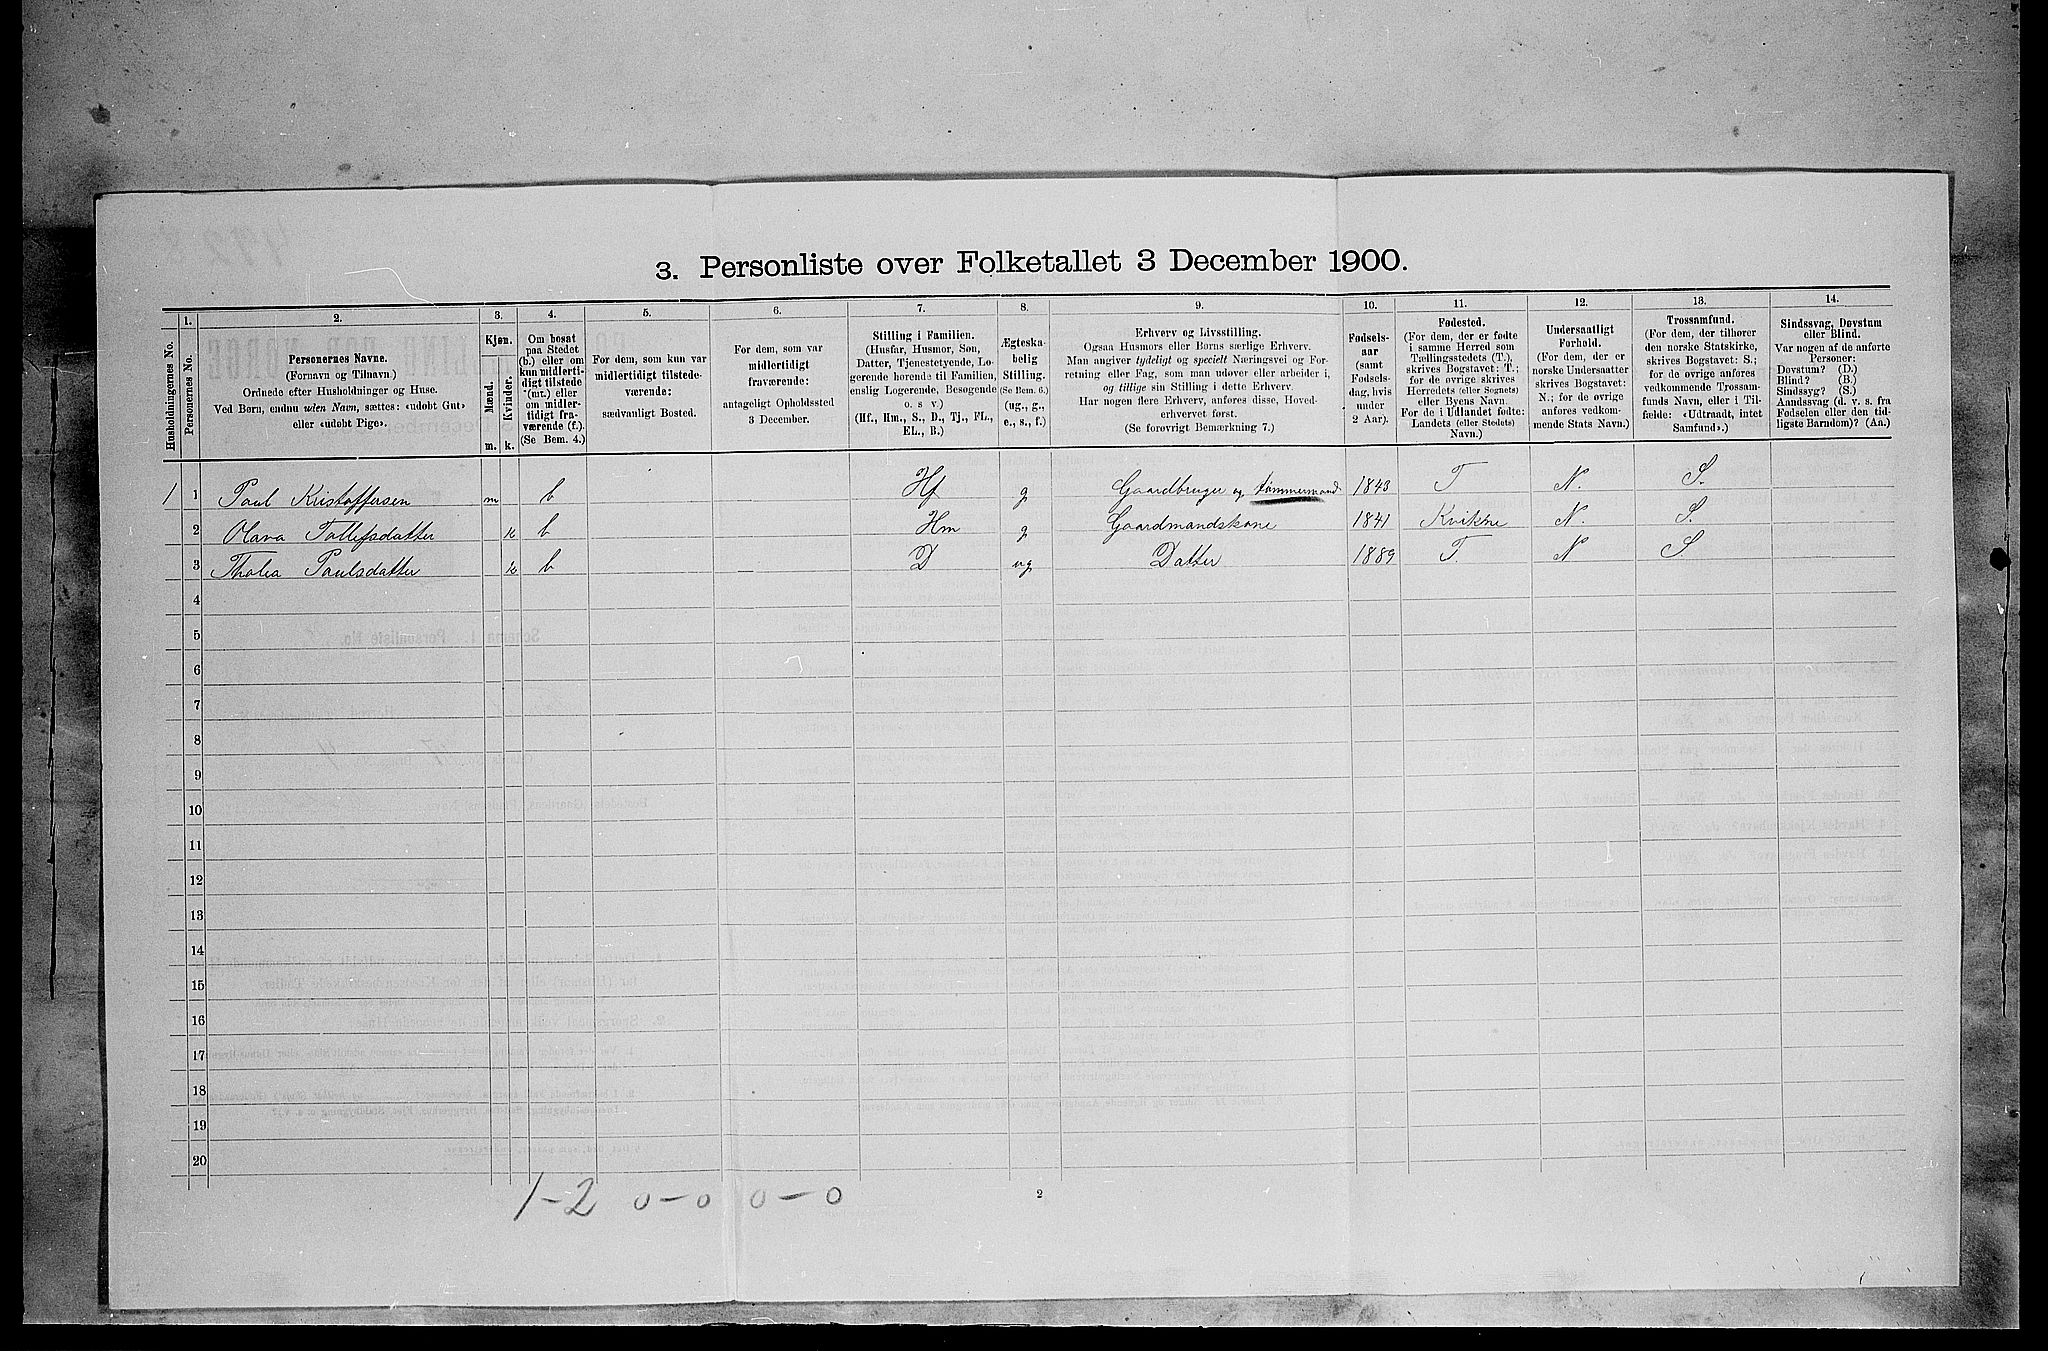 3. Personliste over Folketallet 3 December 1900.
1. 2. 3. 4. 5. 6. 7. 8. 9. 10. 11. 12. 13. 14.
Husholdningernes No.
Personernes No.
Personernes Navne.
(Fornavn og Tilnavn.)
Ordnede efter Husholdninger og Huse.
Ved Børn, endnu uden Navn, sættes: «udøbt Gut»
eller «udøbt Pige».
Kjøn.
Mænd.
Kvinder.
m. k.
Om bosat
paa Stedet
(b.) eller om
kun midlerti-
digt tilstede
(mt.) eller
om midler-
tidigt fra-
værende (f.).
(Se Bem. 4.)
For dem, som kun var
midlertidigt tilstede-
værende:
sædvanligt Bosted.
For dem, som var
midlertidigt
fraværende:
antageligt Opholdssted
3 December.
Stilling i Familien.
(Husfar, Husmor, Søn,
Datter, Tjenestetyende, Lo-
gerende hørende til Familien,
enslig Logerende, Besøgende
o. s v.)
(Hf., Hm., S., D., Tj., FL.,
EL., B.)
Ægteska-
belig
Stilling.
(Se Bem. 6.)
(ug., g.,
e., s., f.)
Erhverv og Livsstilling.
Ogsaa Husmors eller Børns særlige Erhverv.
Man angiver tydeligt og specielt Næringsvei og For-
retning eller Fag, som man udøver eller arbeider i,
og tillige sin Stilling i dette Erhverv.
Har nogen flere Erhverv, anføres disse, Hoved-
erhvervet først.
(Se forøvrigt Bemærkning 7.)
Fødsels-
aar
(samt
Fødsels-
dag, hvis
under
2 Aar).
Fødested.
(For dem, der er fødte
i samme Herred som
Tællingsstedets (T.),
skrives Bogstavet: T.;
for de øvrige skrives
Herredets (eller Sognets)
eller Byens Navn.
For de i Udlandet fødte:
Landets (eller Stedets)
Navn.)
Undersaatligt
Forhold.
(For dem, der er
norske Undersaatter
skrives Bogstavet:
N.; for de øvrige
anføres vedkom-
mende Stats Navn.)
Trossamfund.
(For dem, der tilhører
den norske Statskirke,
skrives Bogstavet: S.;
for de øvrige anføres
vedkommende Trossam-
funds Navn, eller i Til-
fælde: «Udtraadt, intet
Samfund».)
Sindssvag, Døvstum
eller Blind.
Var nogen af de anførte
Personer:
Døvstum? (D.)
Blind? (B.)
Sindssyg? (S.)
Aandssvag (d. v. s. fra
Fødselen eller den tid-
ligste Barndom)? (Aa.)
1 1 Paul Kristoffersen m b Hf g Gaardbruger og tømmermand 1843 T N. S.
2 Olava Tollefsdatter k b Hm g Gaardmandskone 1841 Kvikne N. S.
3 Thalea Paulsdatter k b — D ug Datter 1889 T. N S
4
5
6
7
8
9
10
11
12
13
14
15
16
17
18
19
20
1-2 0-0 0-0
2